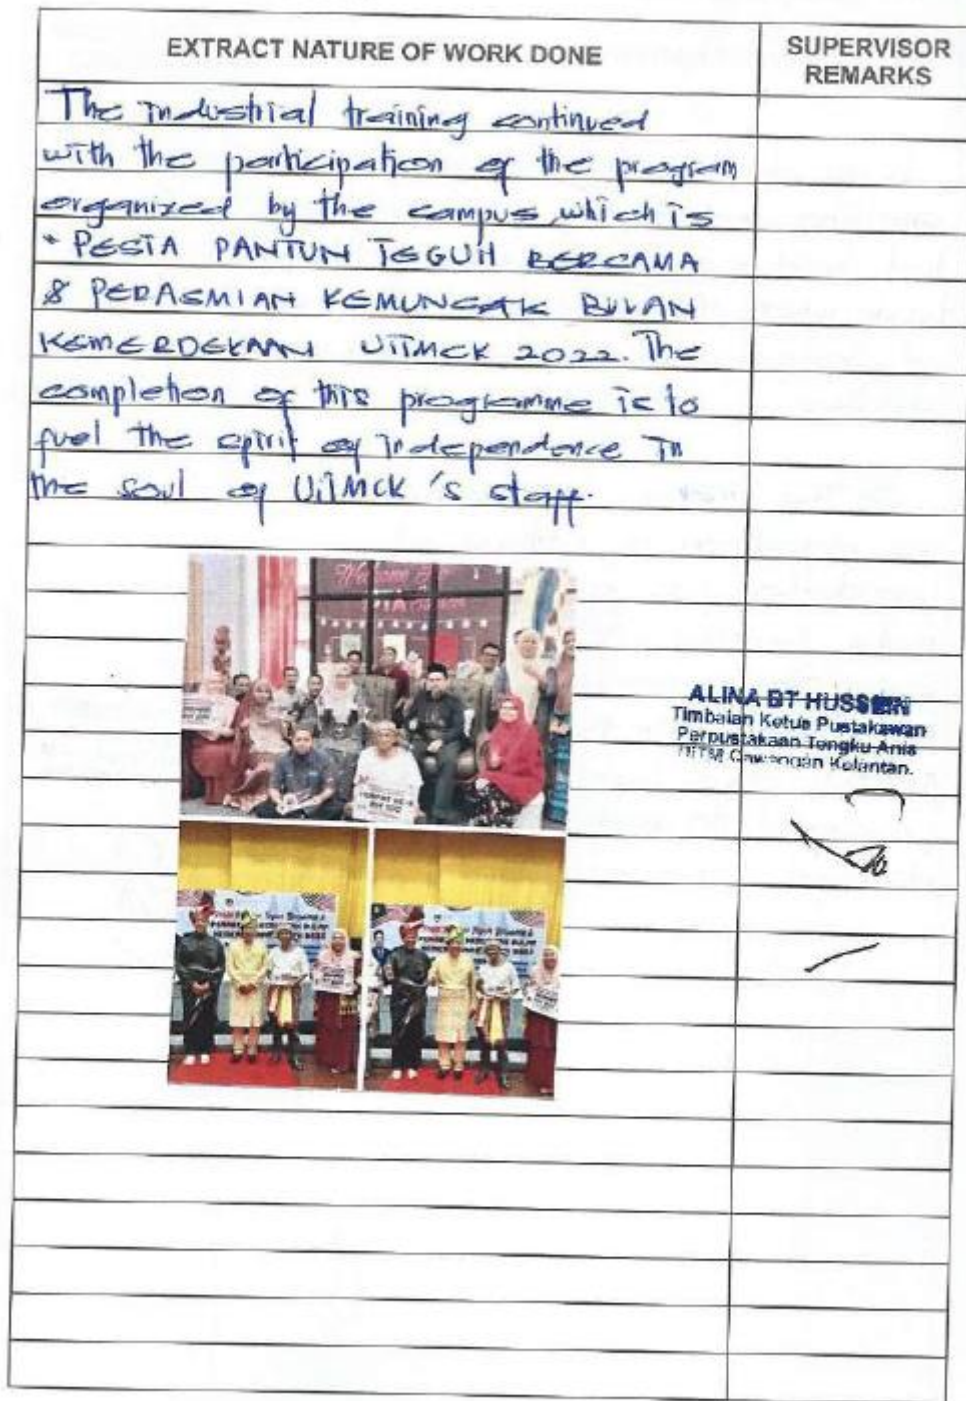 EXTRACT NATURE OF WORK DONE
SUPERVISOR
REMARKS
The industrial training continued
with the participation of the program
organized by the campus, which is
" PESTA PANTUN TEGUH BERSAMA
& PERASMIAN KEMUNCAK BULAN
KEMERDEKAAN UiTMCK 2022. The
completion of this programme is to
fuel the spirit of independence in
the soul of UiTMCK 's staff.
Welcome
ALINA BT HUSSEIN
Timbalan Ketua Pustakawan
Perpustakaan Tengku Anis
UiTM Cawangan Kelantan.